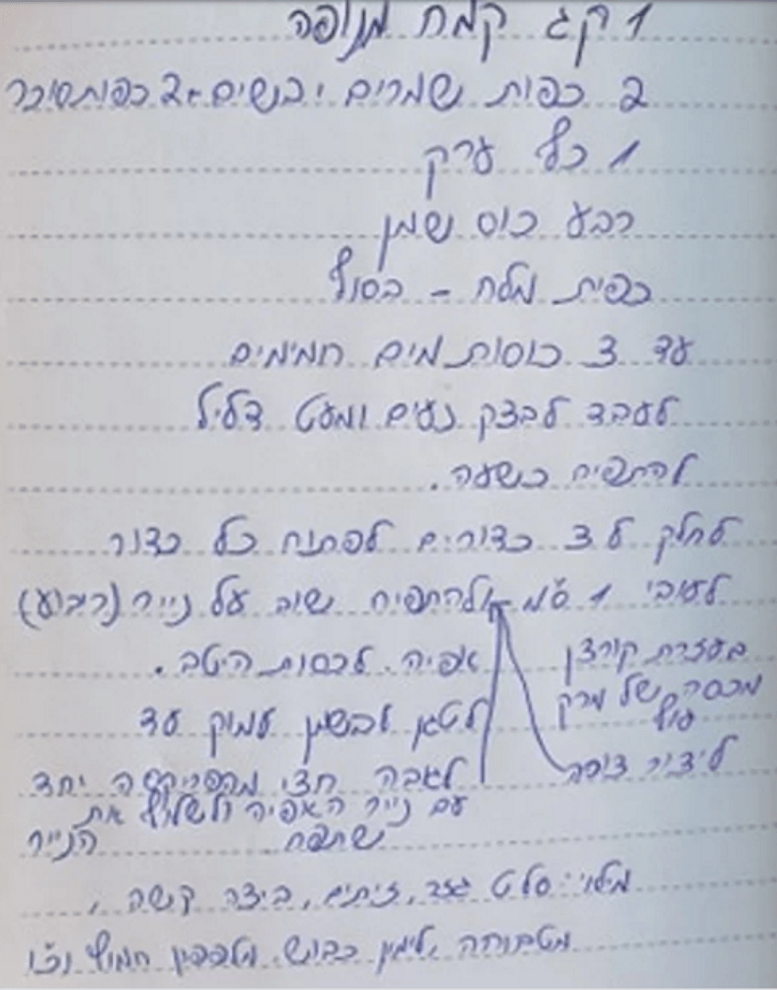 1 קג קמח מנופה
2 כפות שמרים יבשים + 2 כפות סוכר
1 כף ערק
רבע כוס שמן
כפית מלח - בסוף
עד 3 כוסות מים חמימים
לעבד לבצק נעים ומעט דליל
להתפיח כשעה.
לחלק ל 3 כדורים לפתוח כל כדור
לעובי 1 ס"מ ולהתפיח שוב על נייר (ריבוע)
אפיה. לכסות היטב.
בעזרת קורצן
מכסה של מרק
עוף
ליצור צורה
לטגן בשמן עמוק עד
לגובה חצי מהפריקסה יחד
עם נייר האפיה ולשלוף את
הנייר
שתפח
מילוי: סלט גזר, זיתים, ביצה קשה,
מטבוחה, לימון כבוש, מלפפון חמוץ וכו